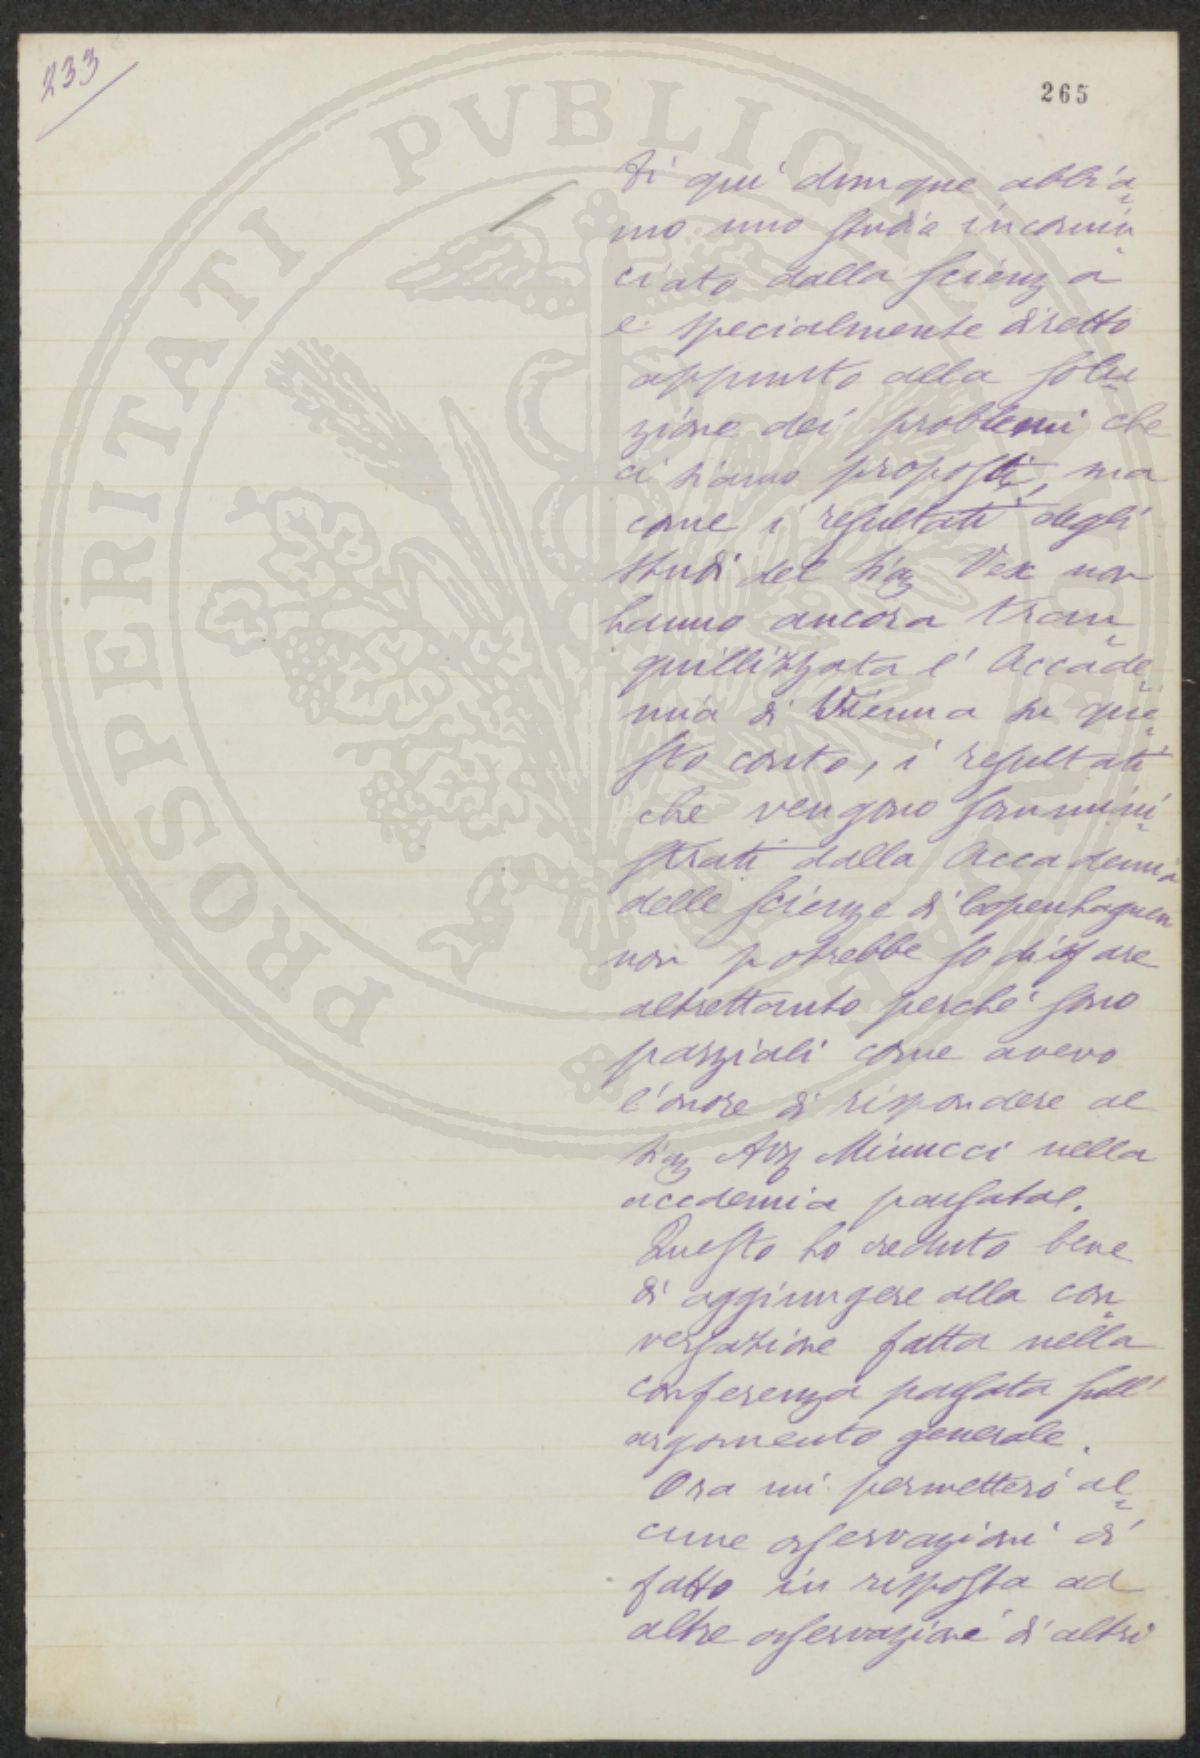 233
265
PROSPERITATI PVBLICAE
Di qui dunque abbia-
mo uno studio incomin-
ciato dalla scienza
e specialmente diretto
appunto alla solu-
zione dei problemi che
ci siamo proposti, ma
come i resultati degli
studi del Sig Vex non
hanno ancora tran-
quillizzata l'Accade-
mia di Vienna su que-
sto conto, i resultati
che vengono sommini-
strati dalla Accademia
delle Scienze di Copenhaguen
non potrebbe sodisfare
altrettanto perché sono
parziali come avevo
l'onore di rispondere al
Sig Avv Minucci nella
accademia passata.
Questo ho creduto bene
di aggiungere alla con-
versazione fatta nella
conferenza passata sull'
argomento generale.
Ora mi permetteró al-
cune osservazioni di
fatto in risposta ad
altre osservazione di altri